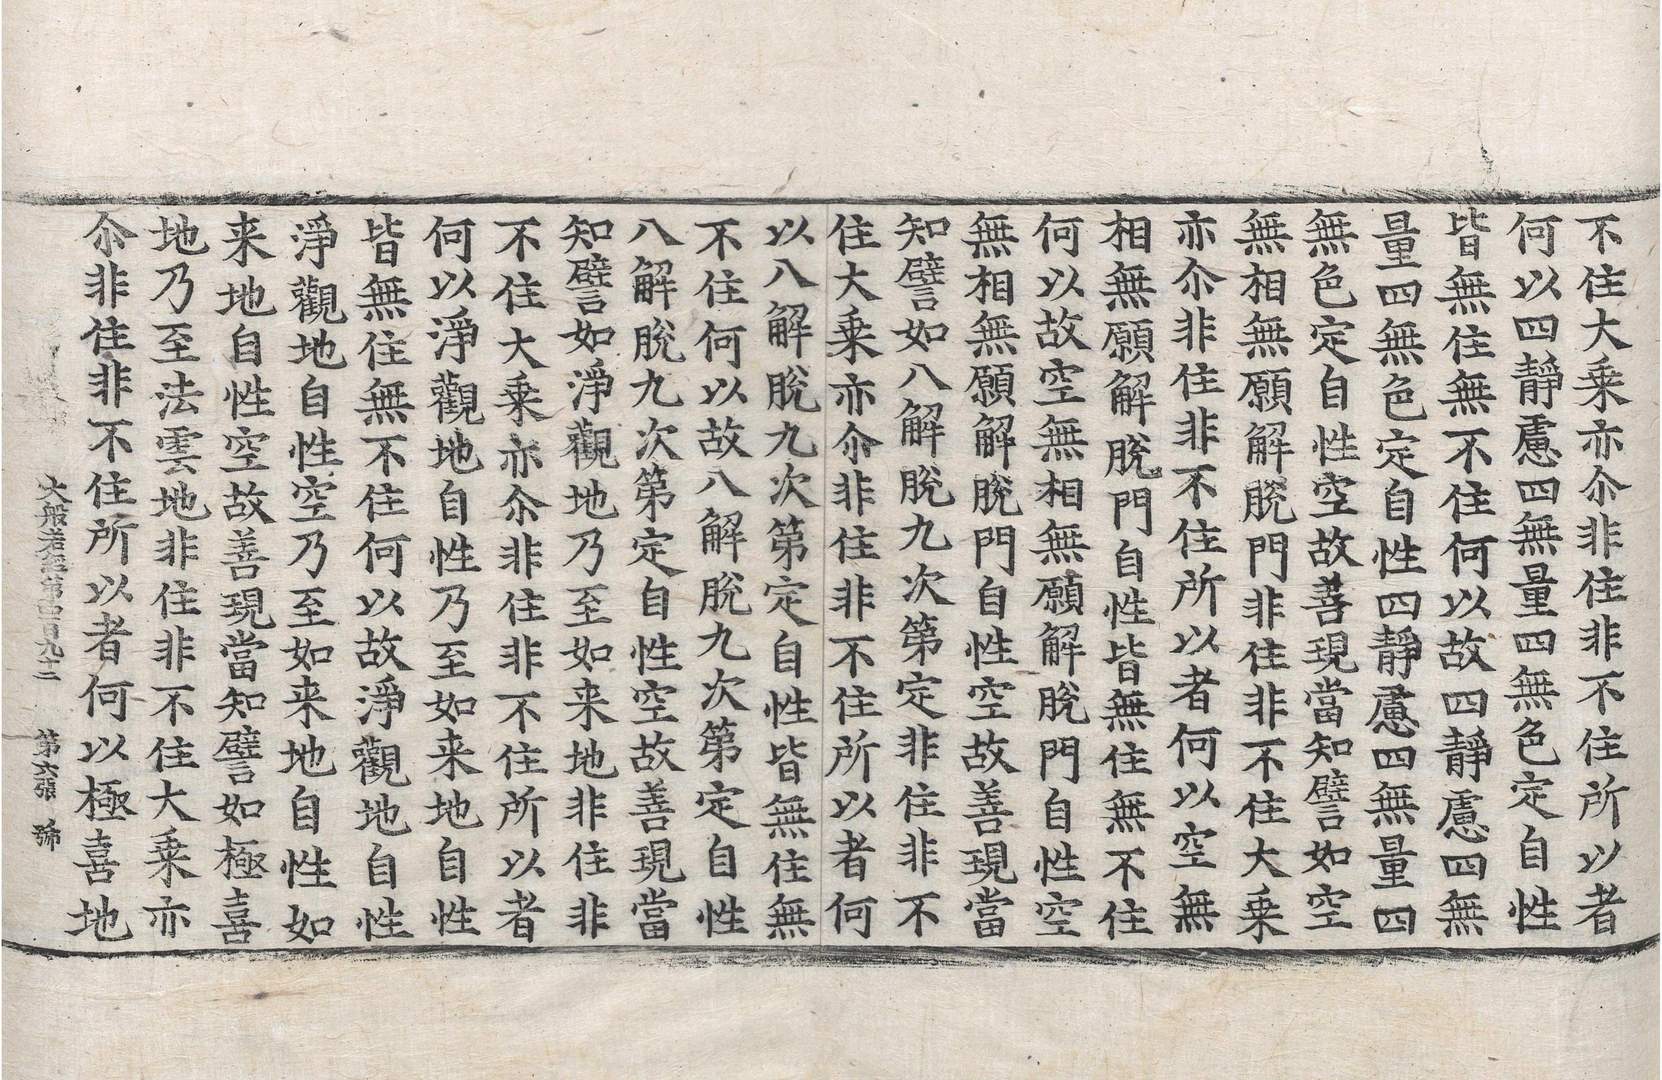 不住大乗亦尒非住非不住所以者
何以四靜慮四無量四無色定自性
皆無住無不住何以故四靜慮四無
量四無色定自性四靜慮四無量四
無色定自性空故善現當知譬如空
無相無願解脫門非住非不住大乗
亦尒非住非不住所以者何以空無
相無願解脫門自性皆無住無不住
何以故空無相無願解脫門自性空
無相無願解脫門自性空故善現當
知譬如八解脫九次第定非住非不
住大乗亦尒非住非不住所以者何
以八解脫九次第定自性皆無住無
不住何以故八解脫九次第定自性
八解脫九次第定自性空故善現當
知譬如淨觀地乃至如来地非住非
不住大乗亦尒非住非不住所以者
何以淨觀地自性乃至如来地自性
皆無住無不住何以故淨觀地自性
淨觀地自性空乃至如来地自性如
来地自性空故善現當知譬如極喜
地乃至法雲地非住非不住大乗亦
尒非住非不住所以者何以極喜地
大般若經第四百九十二 第六張